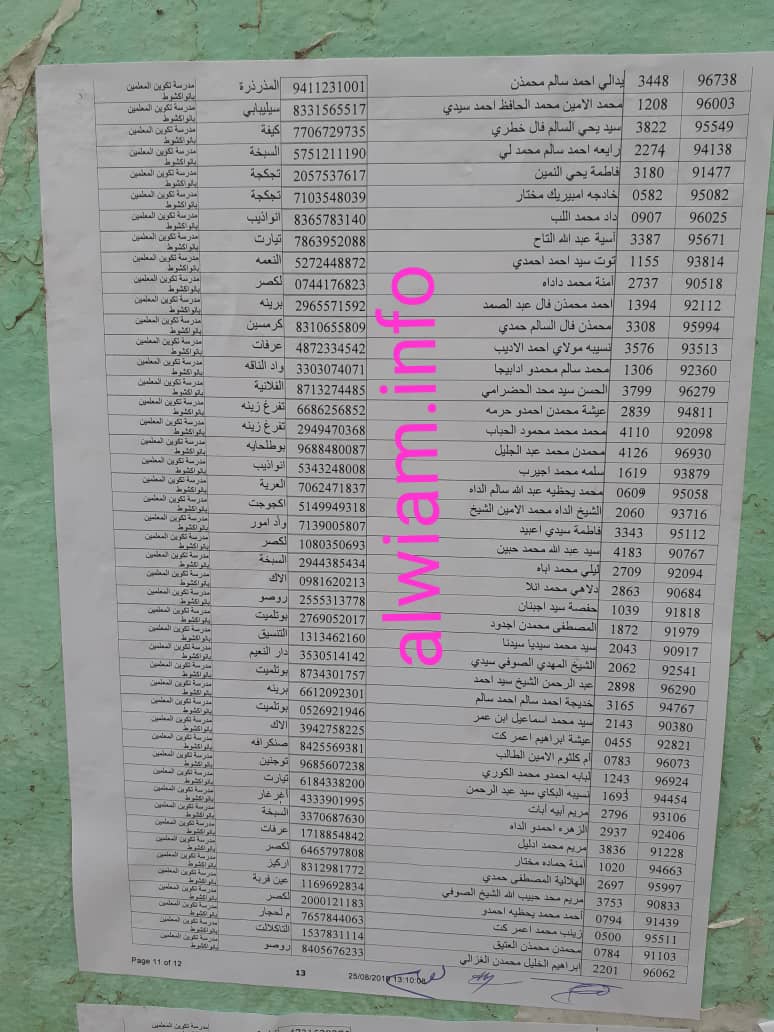 96738 3448 يدالي احمد سالم محمذن 9411231001 المذرذرة مدرسة تكوين المعلمين بانواكشوط
96003 1208 محمد الامين محمد الحافظ احمد سيدي 8331565517 سيليبابي مدرسة تكوين المعلمين بانواكشوط
95549 3822 سيد يحي السالم فال خطري 7706729735 كيفة مدرسة تكوين المعلمين بانواكشوط
94138 2274 رايعه احمد سالم محمد لي 5751211190 السبخة مدرسة تكوين المعلمين بانواكشوط
91477 3180 فاطمة يحي النمين 2057537617 تجكجة مدرسة تكوين المعلمين بانواكشوط
95082 0582 خادجه امبيريك مختار 7103548039 تجكجة مدرسة تكوين المعلمين بانواكشوط
96025 0907 داد محمد اللب 8365783140 انواذيب مدرسة تكوين المعلمين بانواكشوط
95671 3387 آسية عبد الله التاح 7863952088 تيارت مدرسة تكوين المعلمين بانواكشوط
93814 1155 توت سيد احمد احمدي 5272448872 النعمه مدرسة تكوين المعلمين بانواكشوط
90518 2737 آمنة محمد داداه 0744176823 لكصر مدرسة تكوين المعلمين بانواكشوط
92112 1394 احمد محمذن فال عبد الصمد 2965571592 برينه مدرسة تكوين المعلمين بانواكشوط
95994 3308 محمذن فال السالم حمدي 8310655809 كرمسين مدرسة تكوين المعلمين بانواكشوط
93513 3576 نسيبه مولاي احمد الاديب 4872334542 عرفات مدرسة تكوين المعلمين بانواكشوط
92360 1306 محمد سالم محمدو ادابيجا 3303074071 واد الناقه مدرسة تكوين المعلمين بانواكشوط
96279 3799 الحسن سيد محد الحضرامي 8713274485 الغلانية مدرسة تكوين المعلمين بانواكشوط
94811 2839 عيشة محمدن احمدو حرمه 6686256852 تفرغ زينه مدرسة تكوين المعلمين بانواكشوط
92098 4110 محمد محمد محمود الحباب 2949470368 تفرغ زينه مدرسة تكوين المعلمين بانواكشوط
96930 4126 محمدن محمد عبد الجليل 9688480087 بوطلحايه مدرسة تكوين المعلمين بانواكشوط
93879 1619 سلمه محمد اجيرب 5343248008 انواذيب مدرسة تكوين المعلمين بانواكشوط
95058 0609 محمد يحظيه عبد الله سالم الداه 7062471837 العرية مدرسة تكوين المعلمين بانواكشوط
93716 2060 الشيخ الداه محمد الامين الشيخ 5149949318 اكجوجت مدرسة تكوين المعلمين بانواكشوط
95112 3343 فاطمة سيدي اعبيد 7139005807 واد امور مدرسة تكوين المعلمين بانواكشوط
90767 4183 سيد عبد الله محمد حبين 1080350693 لكصر مدرسة تكوين المعلمين بانواكشوط
92094 2709 ليلي محمد اباه 2944385434 السبخة مدرسة تكوين المعلمين بانواكشوط
90684 2863 دلاهي محمد انلا 0981620213 الاك مدرسة تكوين المعلمين بانواكشوط
91818 1039 حفصة سيد اجينان 2555313778 روصو مدرسة تكوين المعلمين بانواكشوط
91979 1872 المصطفى محمدن اجدود 2769052017 بوتلميت مدرسة تكوين المعلمين بانواكشوط
90917 2043 سيد محمد سيديا سيدنا 1313462160 التنسيق مدرسة تكوين المعلمين بانواكشوط
92541 2062 الشيخ المهدي الصوفي سيدي 3530514142 دار النعيم مدرسة تكوين المعلمين بانواكشوط
96290 2898 عبد الرحمن الشيخ سيد احمد 8734301757 بوتلميت مدرسة تكوين المعلمين بانواكشوط
94767 3165 خديجة احمد سالم احمد سالم 6612092301 برينه مدرسة تكوين المعلمين بانواكشوط
90380 2143 سيد محمد اسماعيل ابن عمر 0526921946 بوتلميت مدرسة تكوين المعلمين بانواكشوط
92821 0455 عيشة ابراهيم اعمر كت 3942758225 الاك مدرسة تكوين المعلمين بانواكشوط
96073 0783 أم كلثوم الامين الطالب 8425569381 صنكرافه مدرسة تكوين المعلمين بانواكشوط
96924 1243 لبابه احمدو محمد الكوري 9685607238 توجنين مدرسة تكوين المعلمين بانواكشوط
94454 1693 نسيبه البكاي سيد عبد الرحمن 6184338200 تيارت مدرسة تكوين المعلمين بانواكشوط
93106 2796 مريم أبيه أبات 4333901995 أغرغار مدرسة تكوين المعلمين بانواكشوط
92406 2937 الزهره احمدو الداه 3370687630 السبخة مدرسة تكوين المعلمين بانواكشوط
91228 3836 مريم محمد ادليل 1718854842 عرفات مدرسة تكوين المعلمين بانواكشوط
94663 1020 آمنة حماده مختار 6465797808 لكصر مدرسة تكوين المعلمين بانواكشوط
95997 2697 الهلالية المصطفى حمدي 8312981772 اركيز مدرسة تكوين المعلمين بانواكشوط
90833 3753 مريم محد حبيب الله الشيخ الصوفي 1169692834 عين فربة مدرسة تكوين المعلمين بانواكشوط
91439 0794 أحمد محمد يحظيه احمدو 2000121183 لكصر مدرسة تكوين المعلمين بانواكشوط
95511 0500 زينب محمد اعمر كت 7657844063 م لحجار مدرسة تكوين المعلمين بانواكشوط
91103 0784 محمدن محمذن العتيق 1537831114 التاكلالت مدرسة تكوين المعلمين بانواكشوط
96062 2201 ابراهيم الخليل محمدن الغزالي 8405676233 روصو مدرسة تكوين المعلمين بانواكشوط
Page 11 of 12 13 25/08/2019 13:10:08
alwiam.info